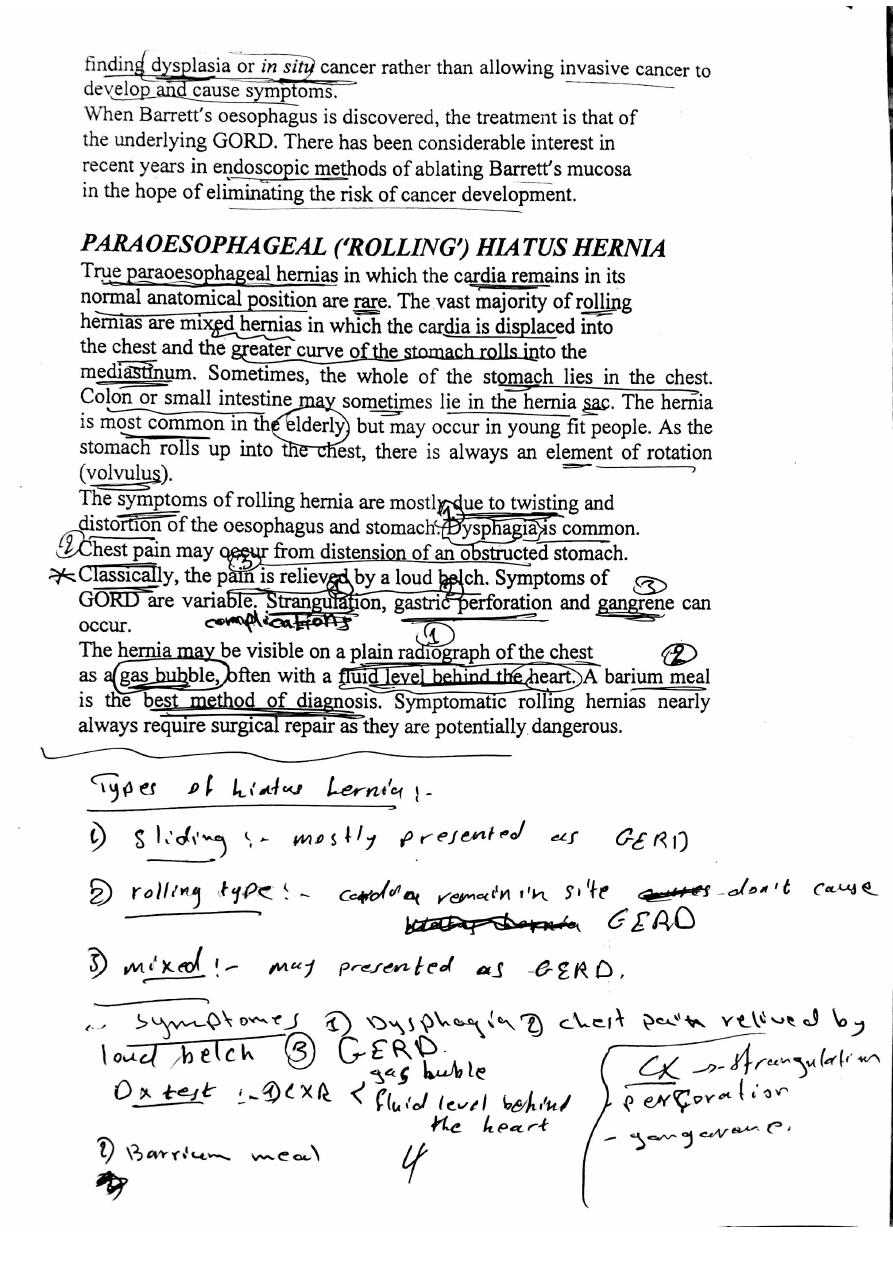 finding dysplasia or in situ cancer rather than allowing invasive cancer to
develop and cause symptoms.
When Barrett's oesophagus is discovered, the treatment is that of
the underlying GORD. There has been considerable interest in
recent years in endoscopic methods of ablating Barrett's mucosa
in the hope of eliminating the risk of cancer development.
PARAOESOPHAGEAL ('ROLLING') HIATUS HERNIA
True paraoesophageal hernias in which the cardia remains in its
normal anatomical position are rare. The vast majority of rolling
hernias are mixed hernias in which the cardia is displaced into
the chest and the greater curve of the stomach rolls into the
mediastinum. Sometimes, the whole of the stomach lies in the chest.
Colon or small intestine may sometimes lie in the hernia sac. The hernia
is most common in the elderly, but may occur in young fit people. As the
stomach rolls up into the chest, there is always an element of rotation
(volvulus).
The symptoms of rolling hernia are mostly due to twisting and
distortion of the oesophagus and stomach. Dysphagia is common.
② Chest pain may occur from distension of an obstructed stomach.
* Classically, the pain is relieved by a loud belch. Symptoms of
GORD are variable. Strangulation, gastric perforation and gangrene can
occur. complications
The hernia may be visible on a plain radiograph of the chest
as a gas bubble, often with a fluid level behind the heart. A barium meal
is the best method of diagnosis. Symptomatic rolling hernias nearly
always require surgical repair as they are potentially dangerous.
Types of hiatus hernia :-
1) Sliding :- mostly presented as GERD
2) rolling type :- remain in site don't cause
GERD
3) mixed :- may presented as GERD.
symptomes 1) Dysphagia 2) chest pain relived by
loud belch ③ GERD.
gas buble
Dx test :- 1) CXR < fluid level behind
the heart
2) Barrium meal
4
CX -> - strangulation
- perforation
- gangerane.